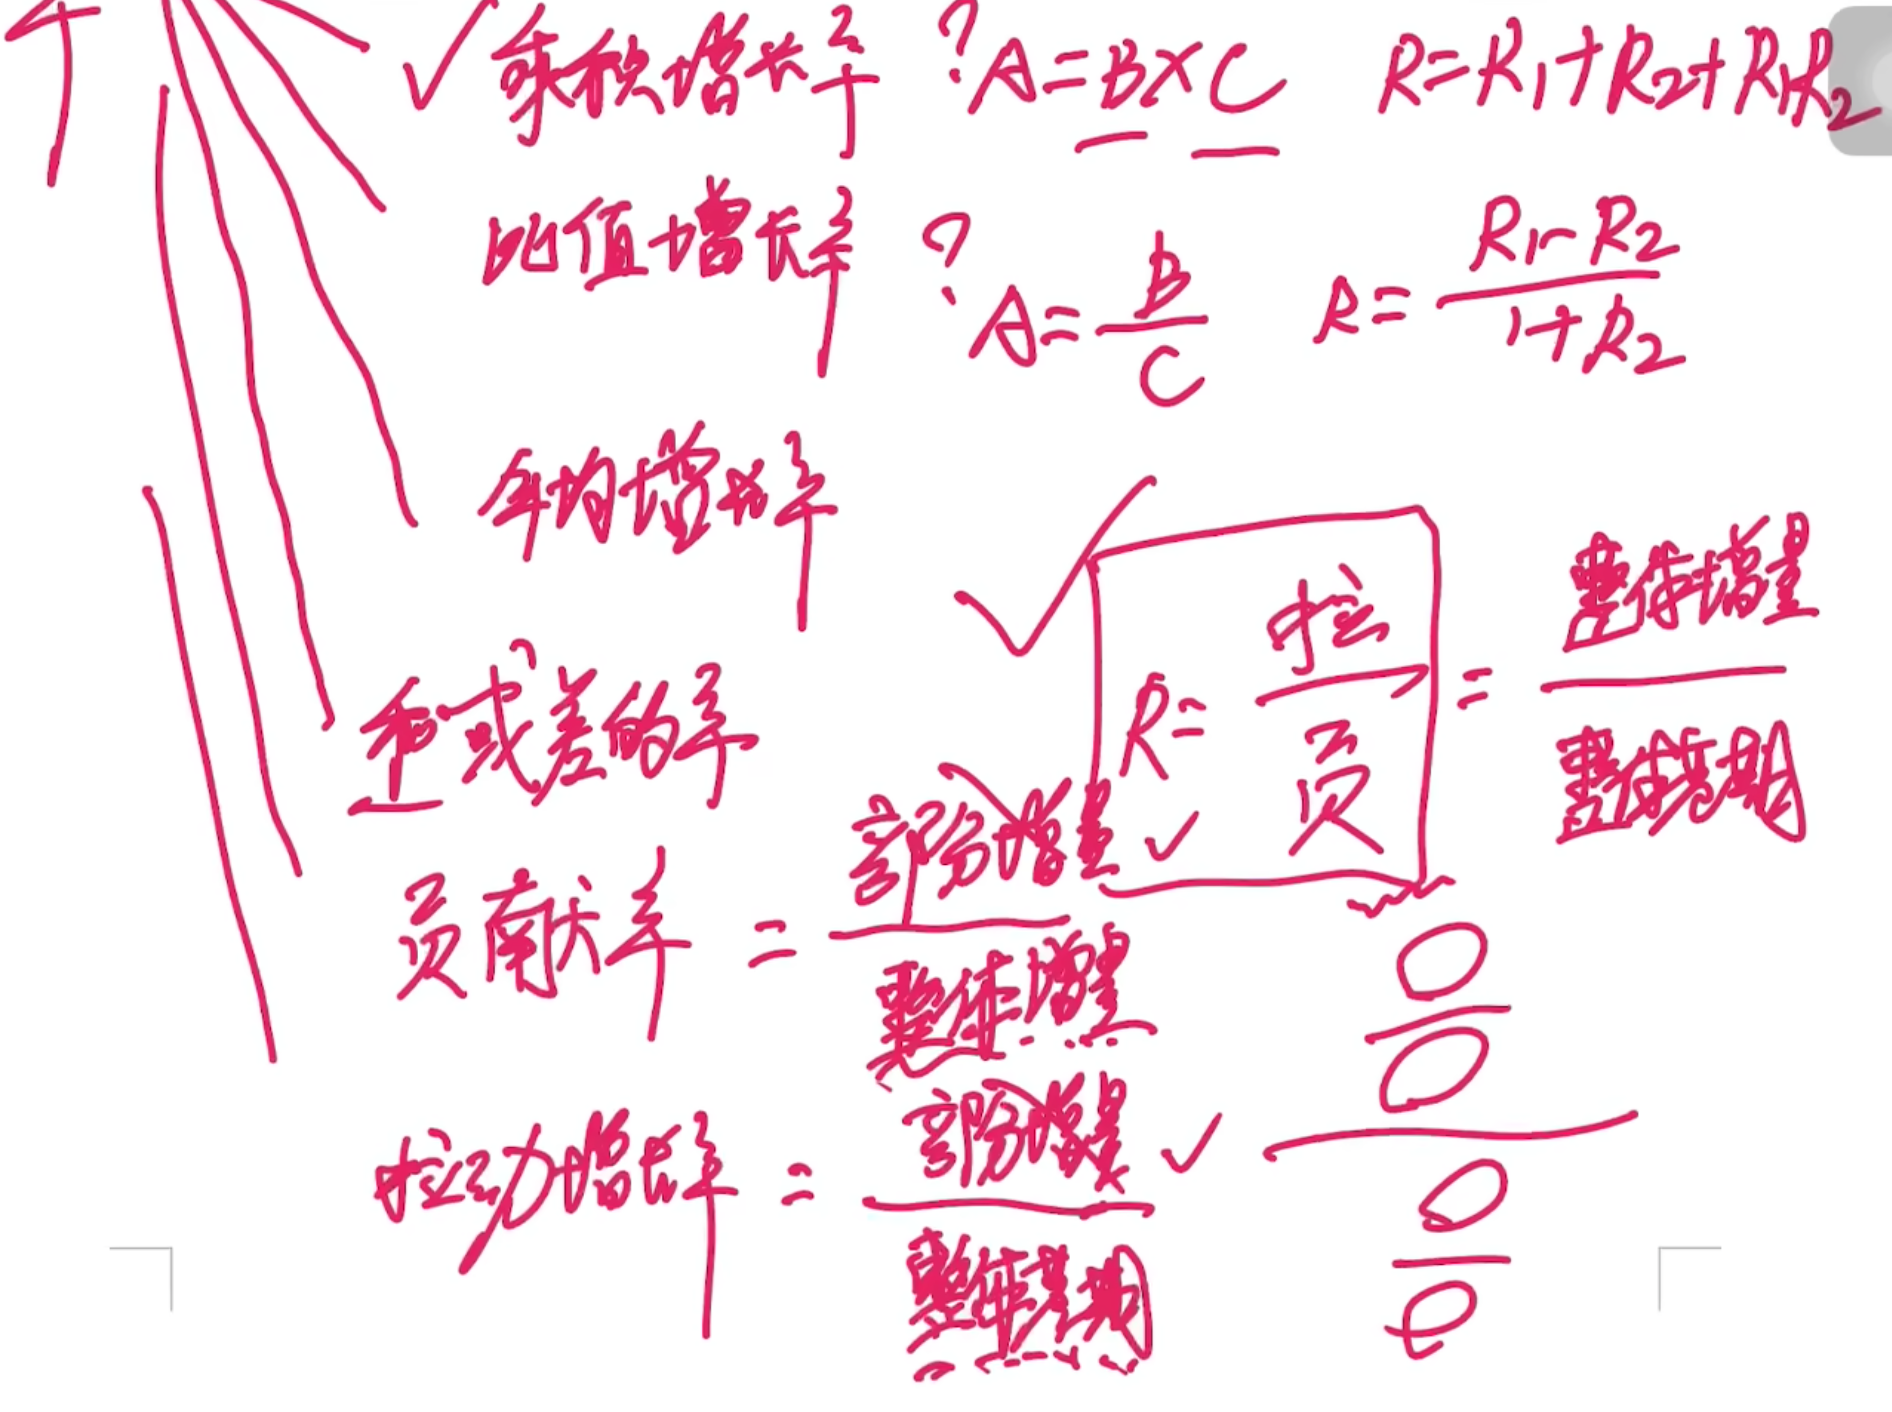 乘积增长率 ? A=B×C R=R₁+R₂+R₁R₂
比值增长率 ? A=B/C R=(R₁-R₂)/(1+R₂)
年均增长率
和或差的率
R=拉/贡=整体增量/整体基期
贡献率=部分增量/整体增量
拉动增长率=部分增量/整体基期